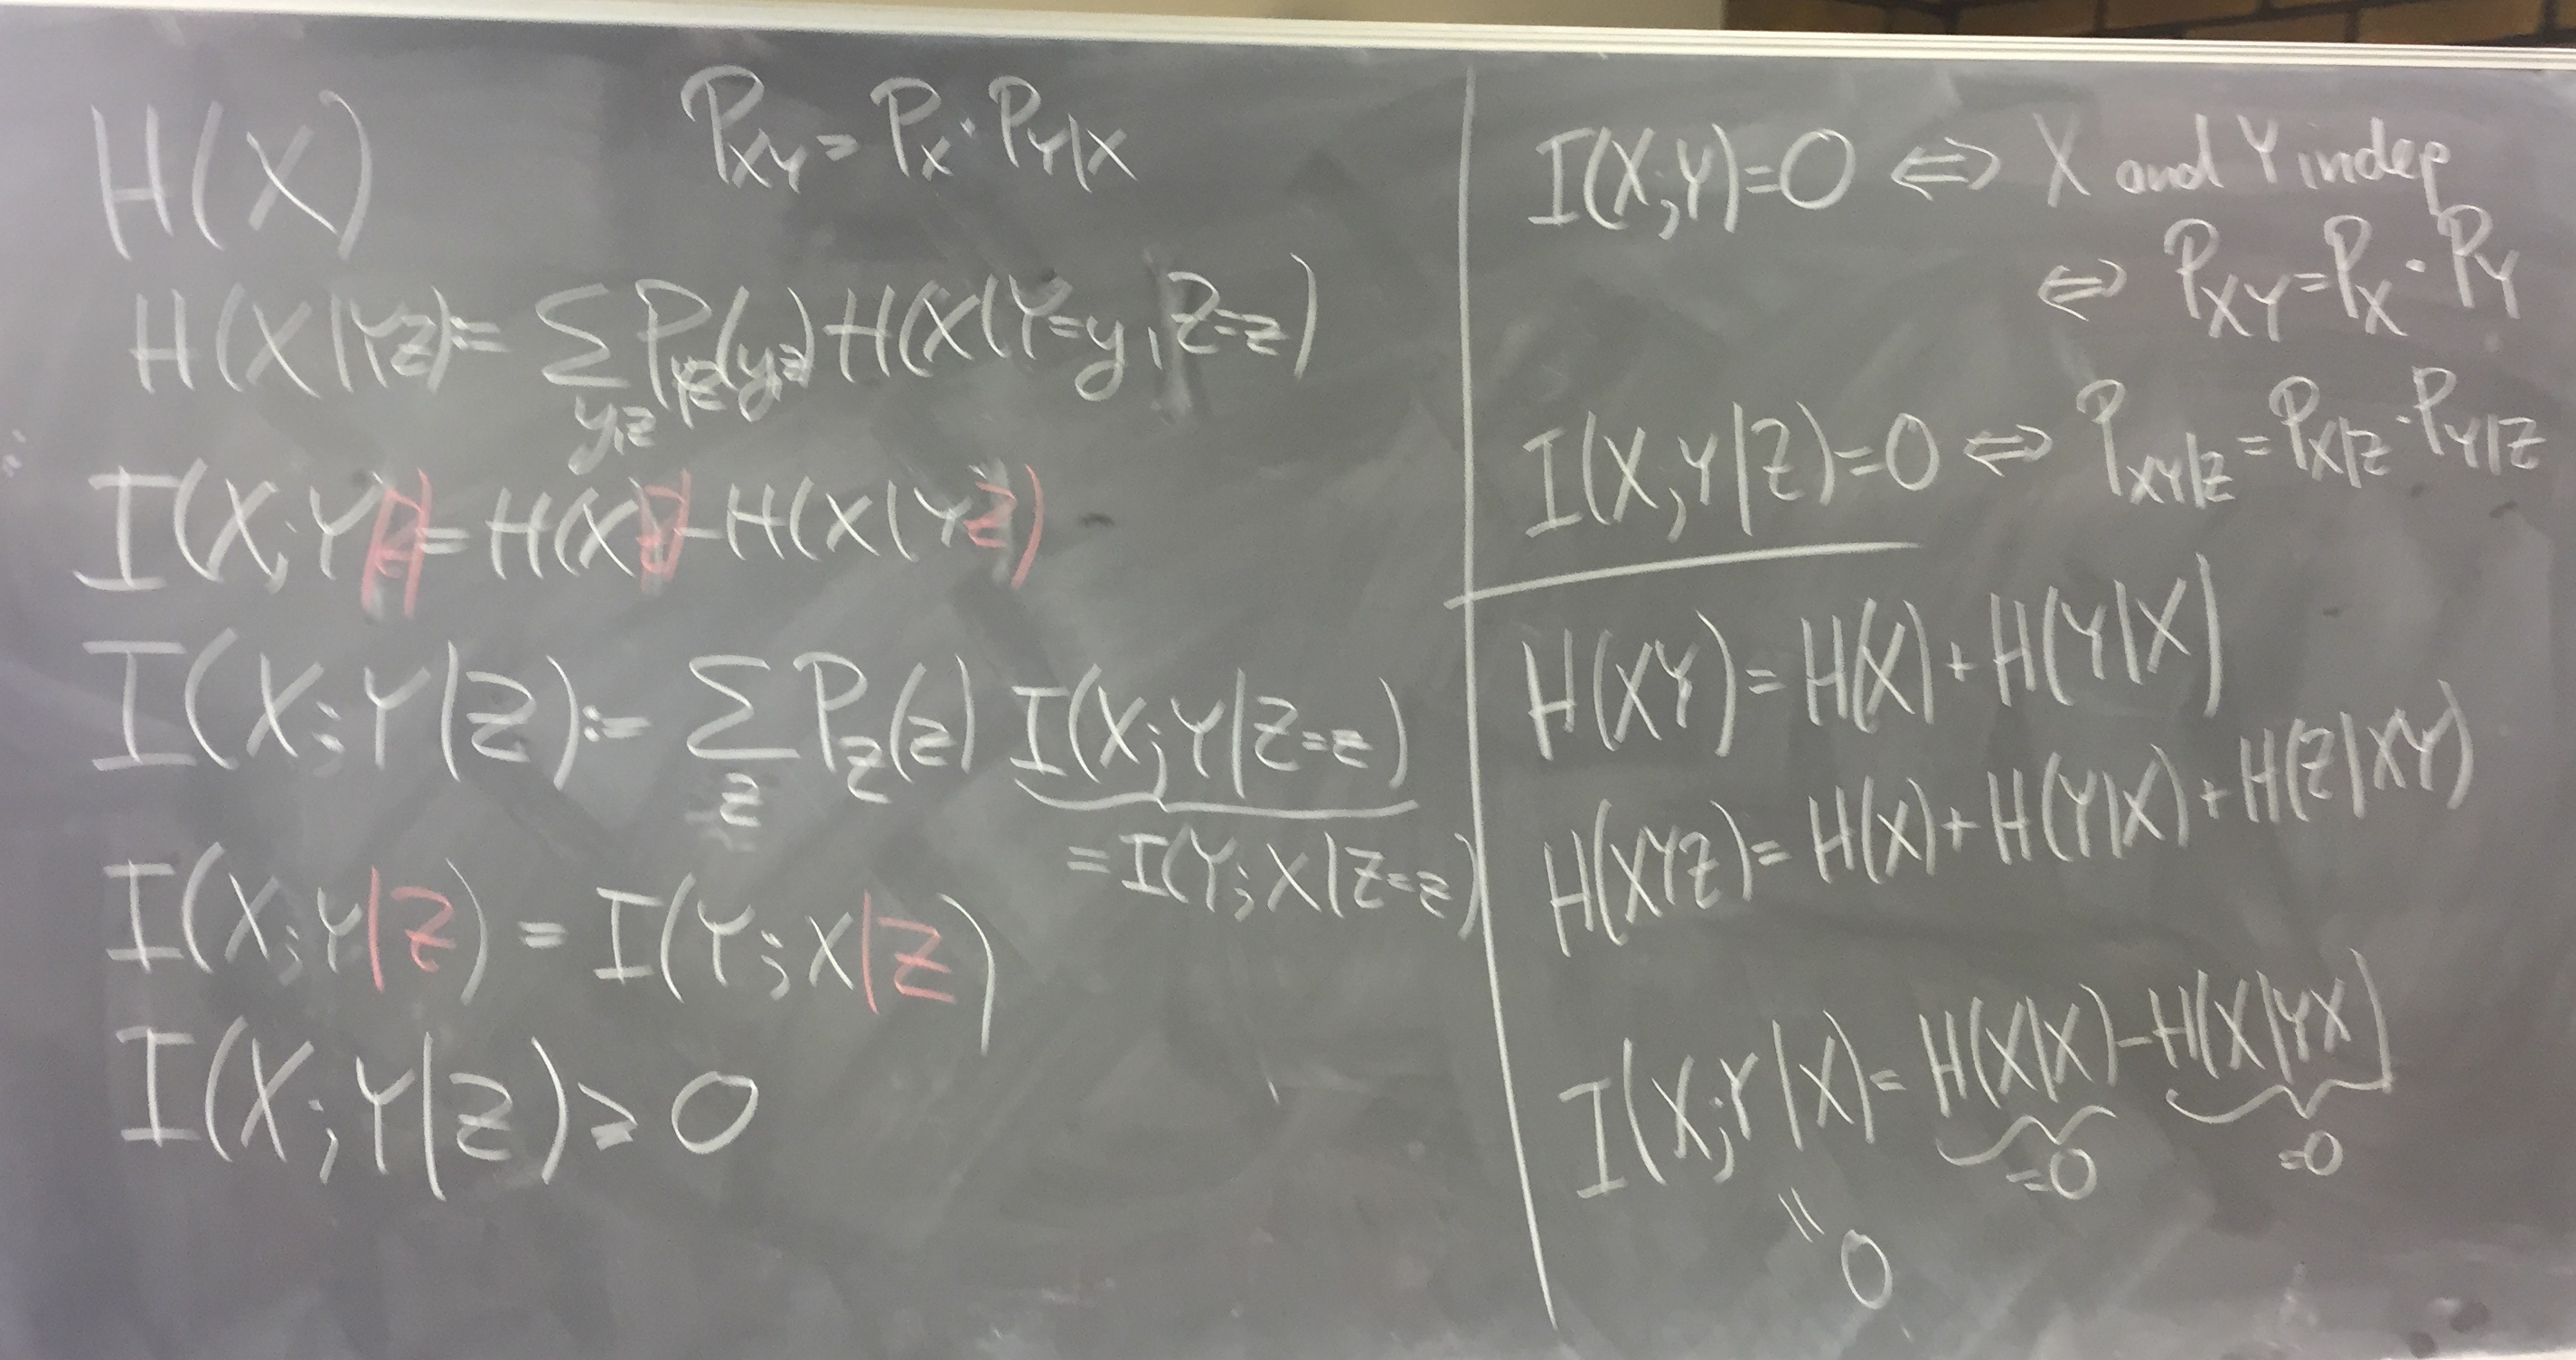 H(X)
P_{XY} = P_X · P_{Y|X}
H(X|YZ) := Σ_{y,z} P_{YZ}(y,z) H(X|Y=y, Z=z)
I(X;Y|Z) = H(X|Z) - H(X|YZ)
I(X;Y|Z) := Σ_z P_Z(z) I(X;Y|Z=z)
= I(Y;X|Z=z)
I(X;Y|Z) = I(Y;X|Z)
I(X;Y|Z) ≥ 0
I(X;Y)=0 ⇔ X and Y indep
⇔ P_{XY} = P_X · P_Y
I(X;Y|Z)=0 ⇔ P_{XY|Z} = P_{X|Z} · P_{Y|Z}
H(XY) = H(X) + H(Y|X)
H(XYZ) = H(X) + H(Y|X) + H(Z|XY)
I(X;Y|X) = H(X|X) - H(X|YX)
=0 =0
= 0